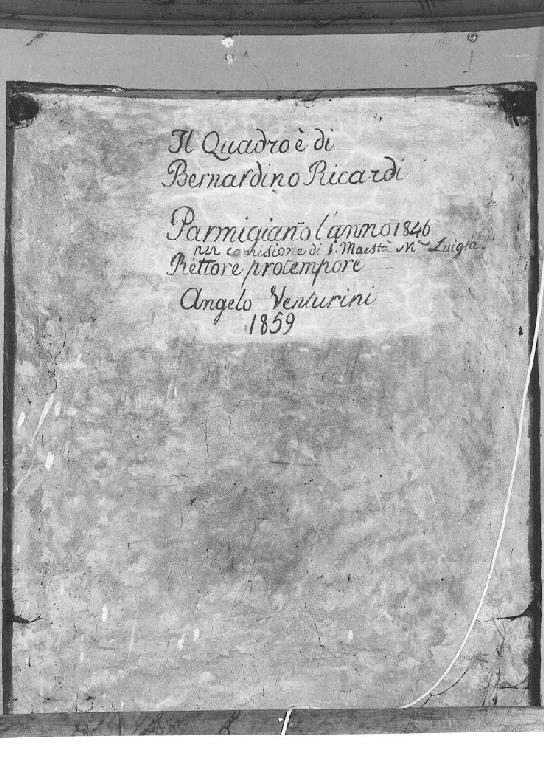 Il Quadro è di
Bernardino Ricardi
Parmigiano l'anno 1846
per co isione di S. Maestà Mª Luigia
Rettore protempore
Angelo Venturini
1859